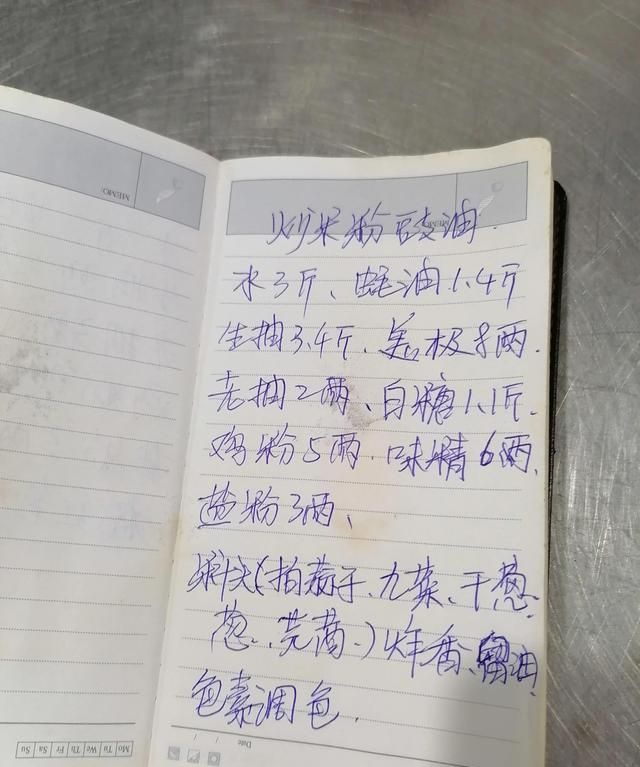 MEMO:
MEMO:
炒米粉豉油.
水3斤、蚝油1.4斤
生抽3.4斤、美极8两.
老抽2两、白糖1.1斤.
鸡粉5两.味精6两、
盐粉3两、
(拍蒜子、九菜、干葱、
葱、芫茜、)炸香、留油、
色素调色.
Mo Tu We Th Fr Sa Su
Date / /